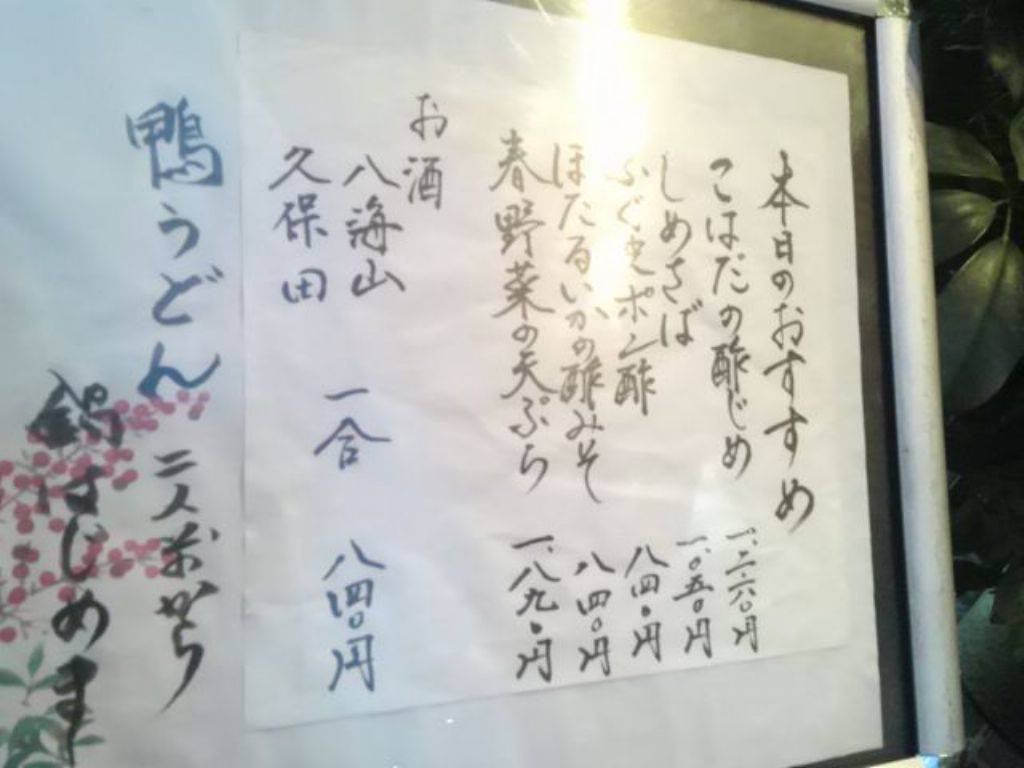 本日のおすすめ
こはだの酢じめ 一、二六〇円
しめさば 一、〇五〇円
ふぐ皮ポン酢 八四〇円
ほたるいかの酢みそ 八四〇円
春野菜の天ぷら 一、八九〇円
お酒
八海山
久保田
一合 八四〇円
鴨うどん 二人前から
鍋はじめま